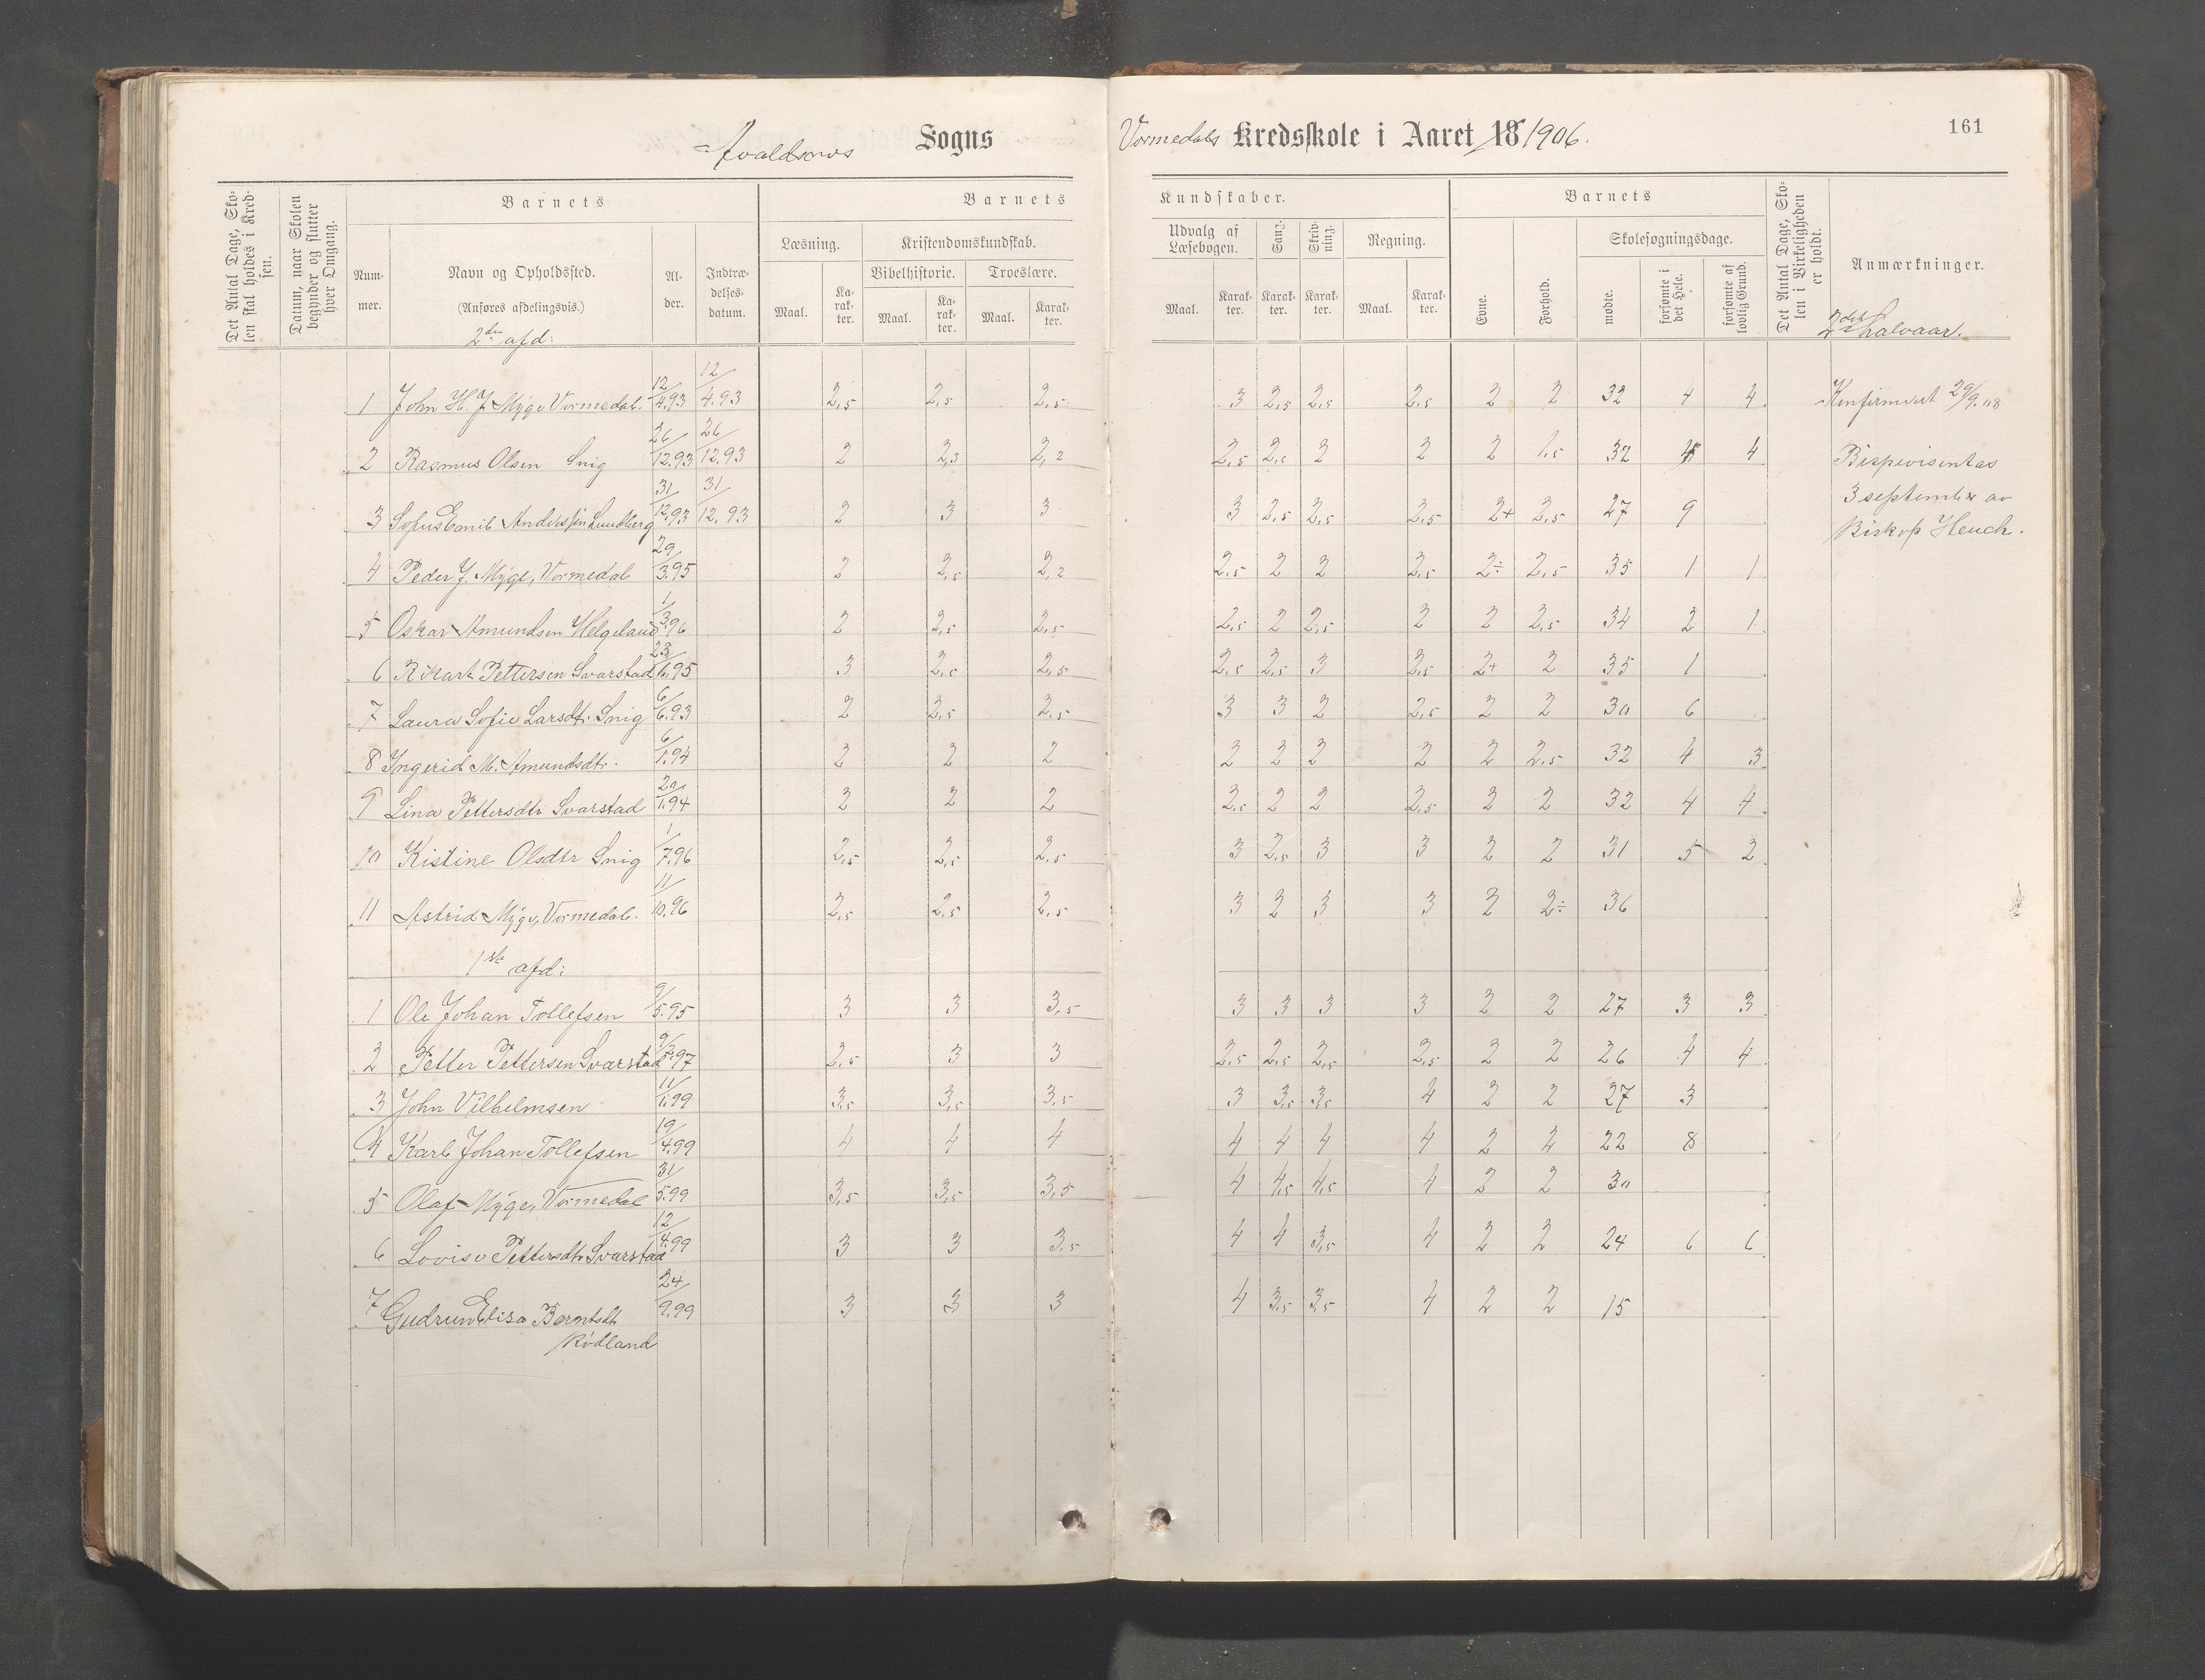 Avaldsnes Sogns
Vormedals Kredsskole i Aaret 18/1906.
161
Det Antal Dage, Skolen skal holdes i Kredsen.
Datum, naar Skolen begynder og slutter hver Omgang.
Barnets
Nummer.
Navn og Opholdssted.
(Anføres afdelingsvis.)
Alder.
Indtrædelsesdatum.
Barnets
Læsning.
Kristendomskundskab.
Bibelhistorie.
Troeslære.
Maal. Karakter. Maal. Karakter. Maal. Karakter.
Kundskaber.
Udvalg af Læsebogen.
Sang.
Skrivning.
Regning.
Maal. Karakter. Karakter. Karakter. Maal. Karakter.
Barnets
Evne.
Forhold.
Skolesøgningsdage.
mødte.
forsømte i det Hele.
forsømte af lovlig Grund.
Det Antal Dage, Skolen i Virkeligheden er holdt.
Anmærkninger.
2det halvaar.
2den afd:
1 John H. J. Myge Vormedal. 12/4.93 12/4.93 2,5 2,5 2,5 3 2,5 2,5 2,5 2 2 32 4 4 Konfirmert 29/9.08
2 Rasmus Olsen Snig 26/12.93 26/12.93 2 2,3 2,2 2,5 2,5 2 2 2 1,5 32 4 4 Bispevisentas
3 Sofus Emil Anderssen Lundberg 31/12.93 31/12.93 2 3 3 3 2,5 2,5 2,5 2+ 2,5 27 9 3 september av
Biskop Heuch.
4 Peder J. Myge, Vormedal 29/3.95 2 2,5 2,2 2,5 2 2 2,5 2÷ 2,5 35 1 1
5 Oskar Amundsen Helgeland 1/3.96 2 2,5 2,5 2,5 2 2,5 2 2 2,5 34 2 1
6 Rikart Pettersen Svarstad 23/6.95 3 2,5 2,5 2,5 2,5 3 2,5 2+ 2 35 1
7 Laura Sofie Larsdt. Snig 6/6.93 2 2,5 2,5 3 3 2 2,5 2 2 30 6
8 Ingerid M. Amundsdtr. 6/1.94 2 2 2 2 2 2 2 2 2,5 32 4 3
9 Lina Pettersdtr Svarstad 20/1.94 2 2 2 2,5 2 2 2,5 2 2 32 4 4
10 Kistine Olsdtr Snig 1/7.96 2,5 2,5 2,5 3 2,5 3 3 2 2 31 5 2
11 Astrid Myge, Vormedal. 11/10.96 2,5 2,5 2,5 3 2 3 3 2 2÷ 36
1ste afd:
1 Ole Johan Tollefsen 9/5.95 3 3 3,5 3 3 3 3 2 2 27 3 3
2 Petter Pettersen Svarstad 9/8.97 2,5 3 3 2,5 2,5 2,5 2,5 2 2 26 4 4
3 John Vilhelmsen 11/1.99 3,5 3,5 3,5 3 3,5 3,5 4 2 2 27 3
4 Karl Johan Tollefsen 19/4.99 4 4 4 4 4 4 4 2 2 22 8
5 Olaf Myge, Vormedal 31/5.99 3,5 3,5 3,5 4 4,5 4,5 4 2 2 30
6 Lovise Pettersdtr Svarstad 12/4.99 3 3 3,5 4 4 3,5 4 2 2 24 6 6
7 Gudrun Elisa Berntsdt 24/9.99 3 3 3 4 3,5 3,5 4 2 2 15
Rödland